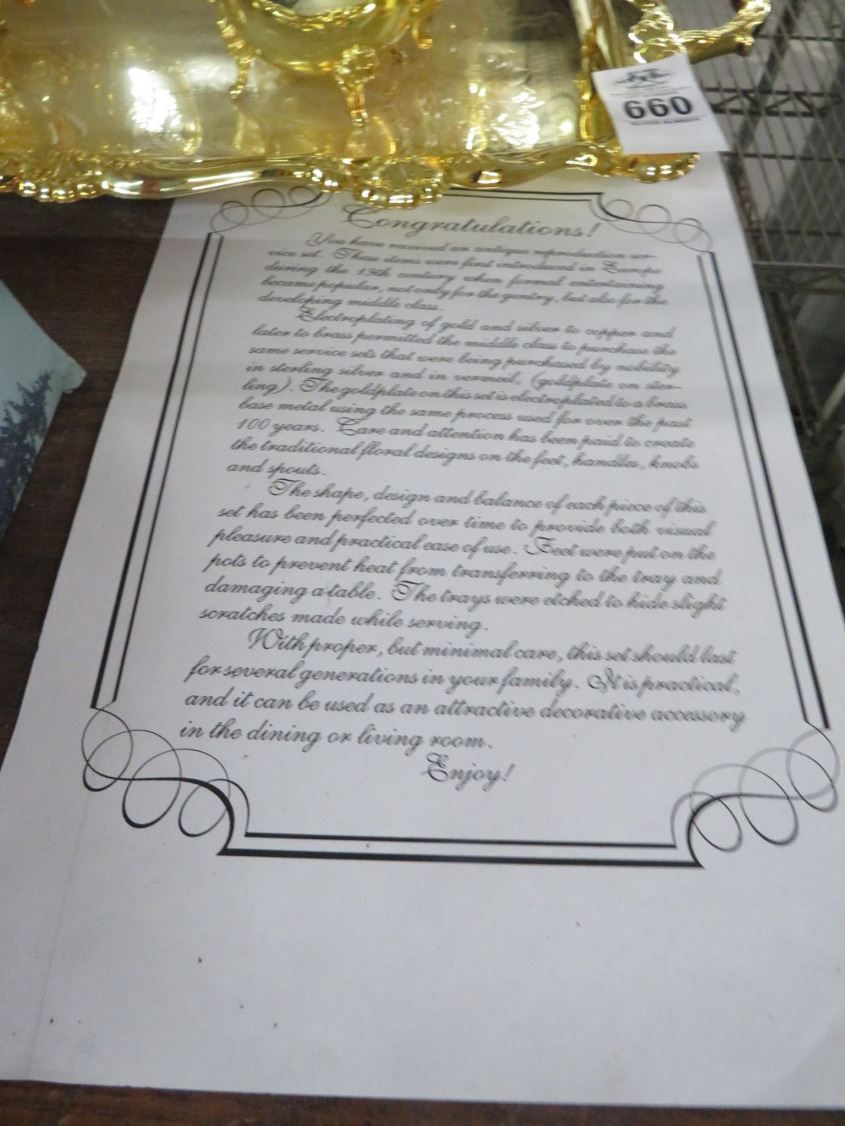 660
Congratulations!
You have received an antique reproduction ser-
vice set. These items were first introduced in Europe
during the 19th century when formal entertaining
became popular, not only for the gentry, but also for the
developing middle class.
Electroplating of gold and silver to copper and
later to brass permitted the middle class to purchase the
same service sets that were being purchased by nobility
in sterling silver and in vermeil, (goldplate on ster-
ling). The goldplate on this set is electroplated to a brass
base metal using the same process used for over the past
100 years. Care and attention has been paid to create
the traditional floral designs on the feet, handles, knobs
and spouts.
The shape, design and balance of each piece of this
set has been perfected over time to provide both visual
pleasure and practical ease of use. Feet were put on the
pots to prevent heat from transferring to the tray and
damaging a table. The trays were etched to hide slight
scratches made while serving.
With proper, but minimal care, this set should last
for several generations in your family. It is practical,
and it can be used as an attractive decorative accessory
in the dining or living room.
Enjoy!